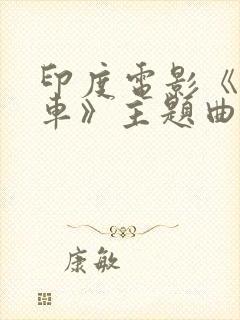 印度電影《
車》主題曲
康敏